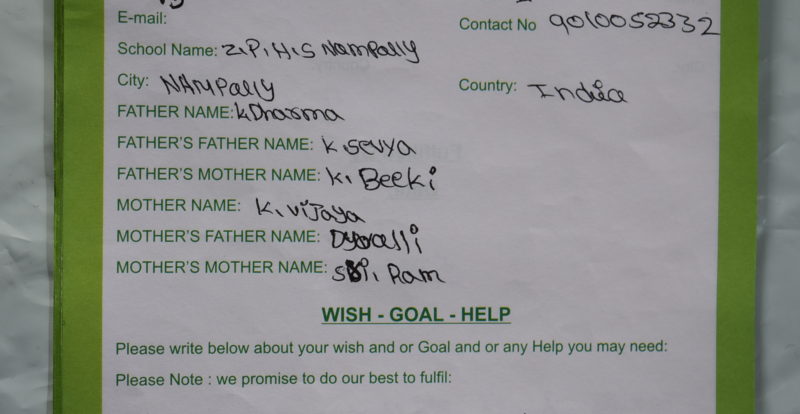 E-mail: Contact No 9010052332
School Name: Z.P.H.S Nampally
City: NAMPally Country: India
FATHER NAME: K Dharma
FATHER'S FATHER NAME: K Sevya
FATHER'S MOTHER NAME: K. Beeki
MOTHER NAME: K. vijaya
MOTHER'S FATHER NAME:
MOTHER'S MOTHER NAME: Ram
WISH - GOAL - HELP
Please write below about your wish and or Goal and or any Help you may need:
Please Note : we promise to do our best to fulfil: